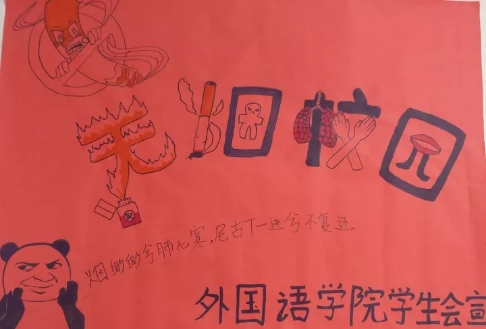 无烟校园
烟缈缈兮肺心寒，尼古丁一进兮不复还
外国语学院学生会宣